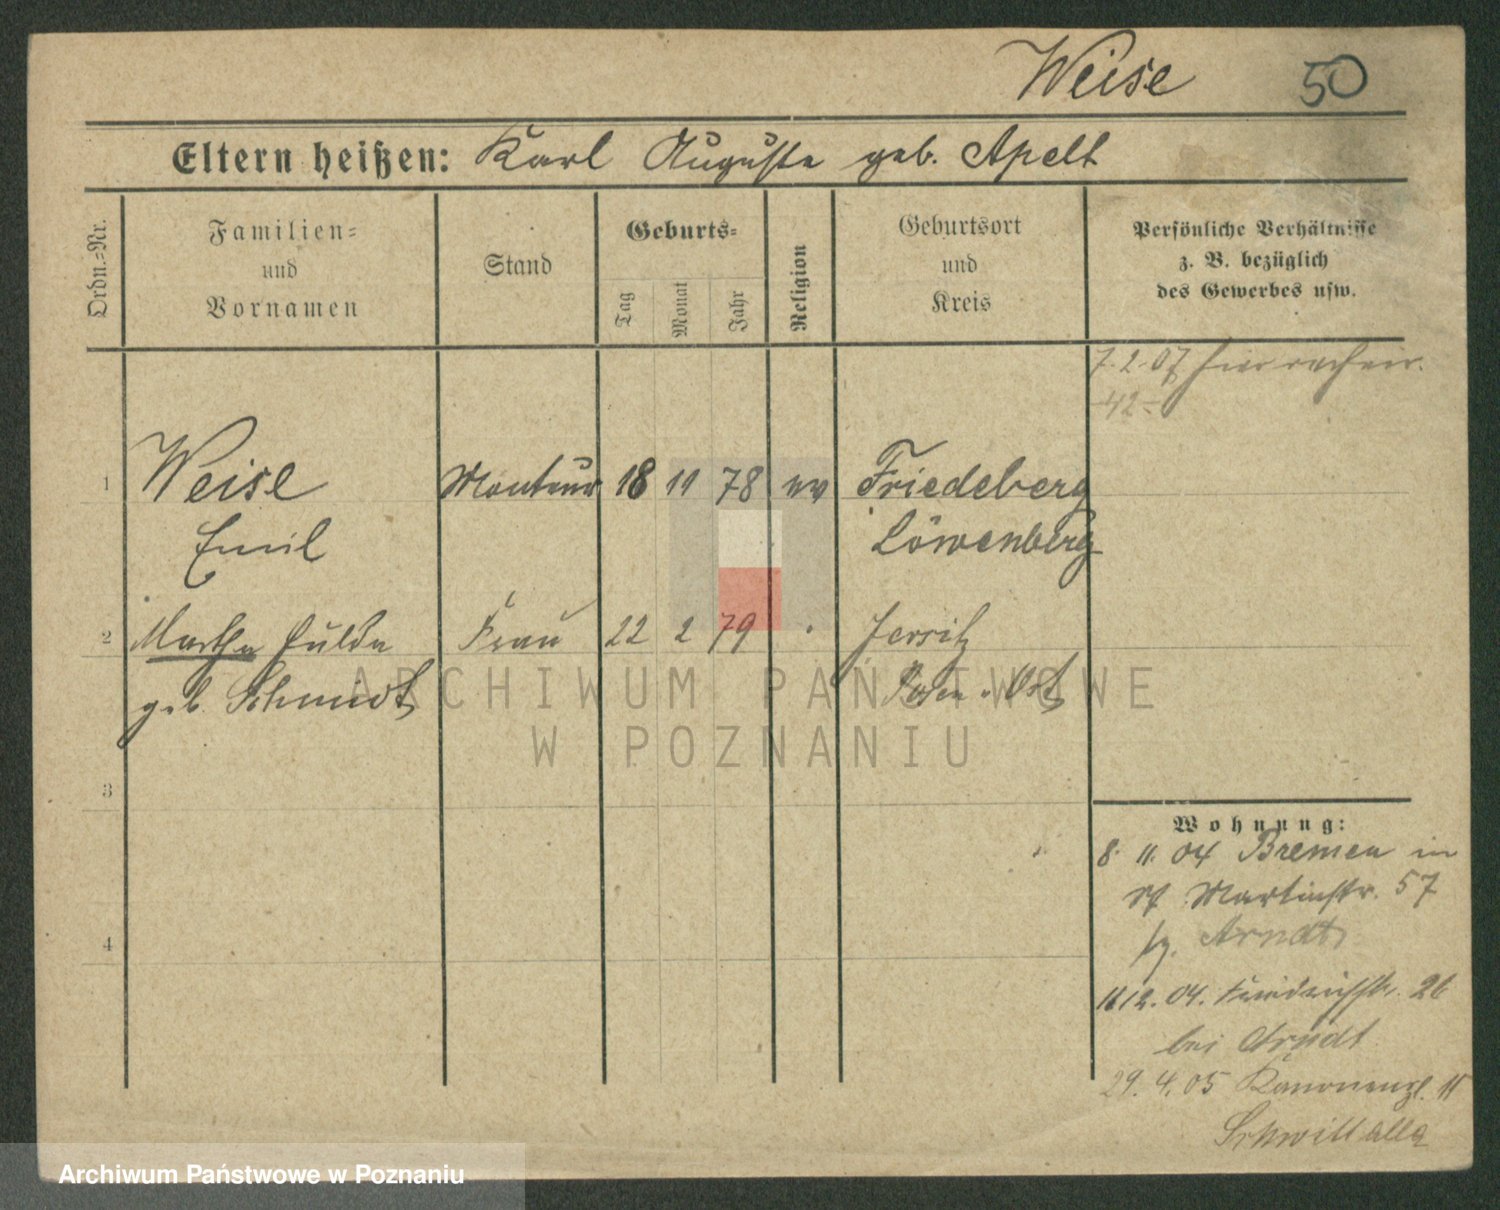 Weise 50
Eltern heißen: Karl Auguste geb. Apelt
Ordn.=Nr.
Familien=
und
Vornamen
Stand
Geburts=
Tag
Monat
Jahr
Religion
Geburtsort
und
Kreis
Persönliche Verhältnisse
z. B. bezüglich
des Gewerbes usw.
7.2.07 hier
42
1 Weise Monteur 18 11 78 ev Friedeberg
Emil Löwenberg
2 Martha Hulda Frau 22 2 79 Jersitz
geb. Schmidt Posen Ost
ARCHIWUM PAŃSTWOWE
W POZNANIU
3
4
Wohnung:
8. 11. 04 Bremen in
Martinstr. 57
Arndt
12. 04. Friedrichstr. 26
bei Arndt
29. 4. 05 Kanonenpl. 11
Schwittalla
Archiwum Państwowe w Poznaniu